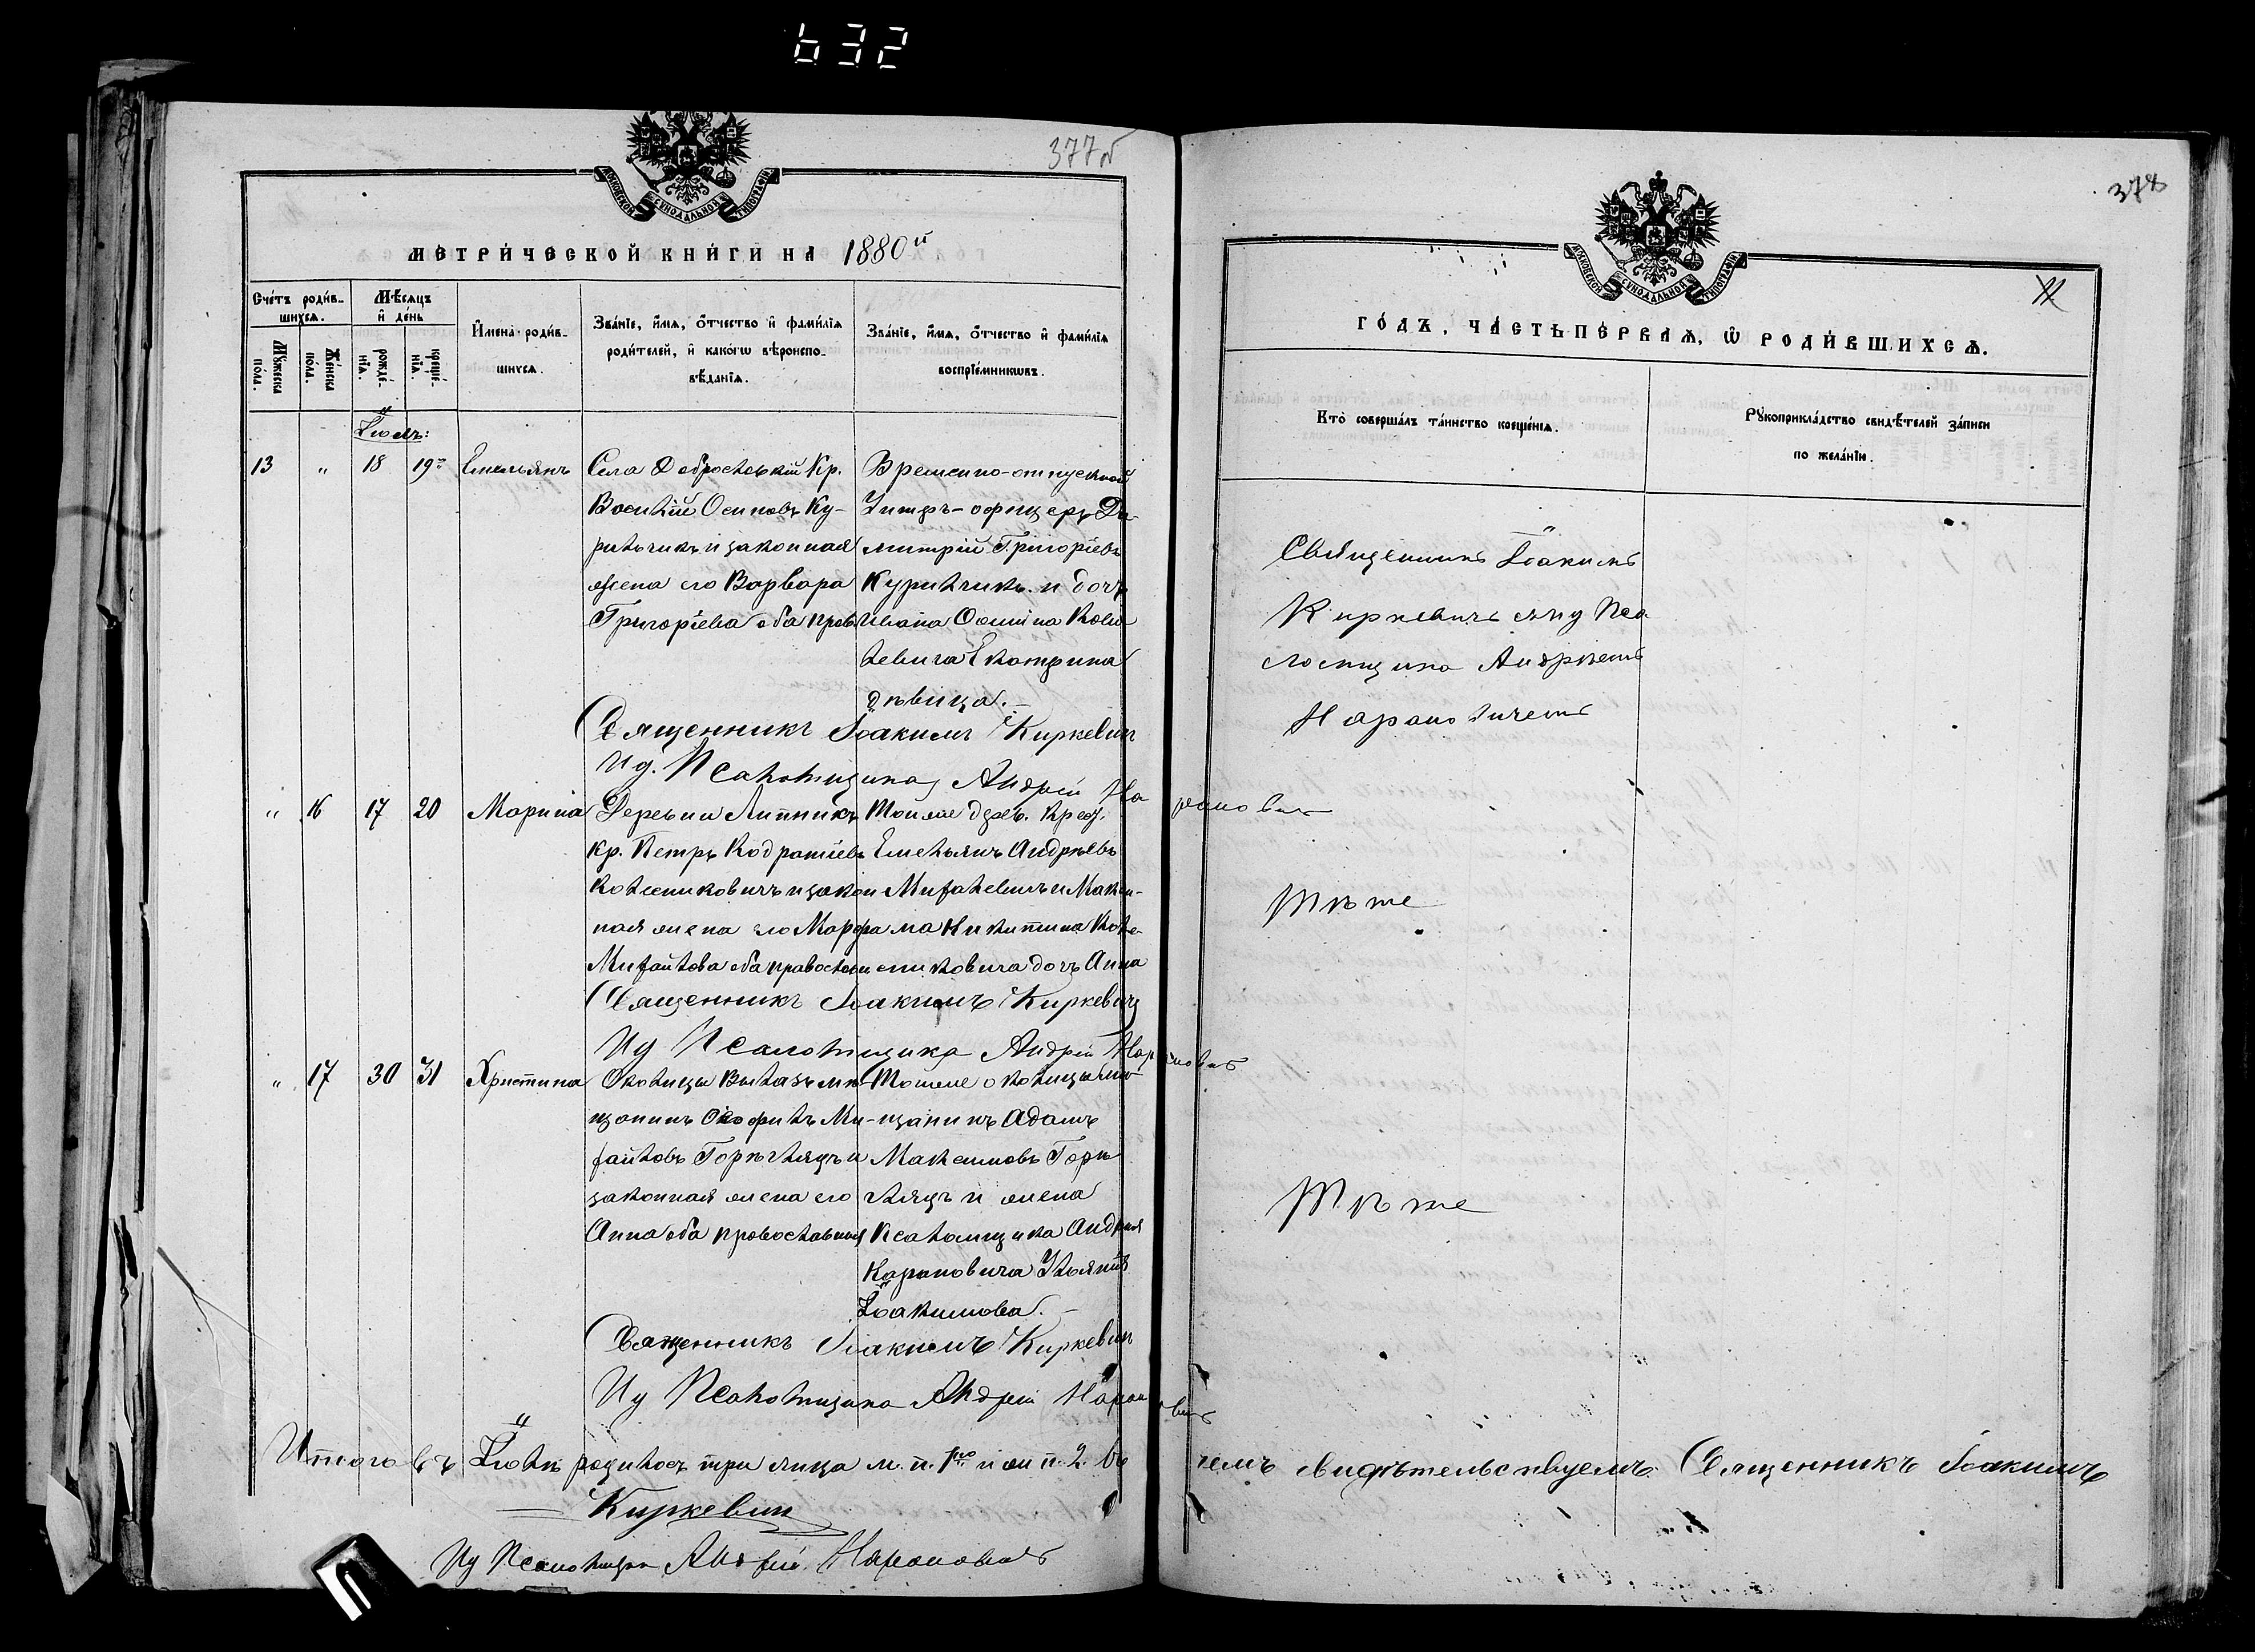 632
377 об
МЕТРИ́ЧЕСКОЙ КНИ́ГИ НА 1880й
Сче́тъ роди́вшихсѧ.
Мѣ́сѧцъ и҆ де́нь
Мꙋ́жеска по́ла.
Же́нска по́ла.
рожде́нїѧ.
креще́нїѧ.
И҆мена̀ роди́вшихсѧ.
Зва́нїе, и҆́мѧ, ѻ҆́тчество и҆ фами́лїѧ
роди́телей, и҆ како́гѡ вѣроиспо-
вѣ́данїѧ.
Зва́нїе, и҆́мѧ, ѻ҆́тчество и҆ фами́лїѧ
воспрїе́мникѡвъ.
Іюль:
13 " 18 19го Емельянъ
Села Доброславкій Кр.
Василій Осиповъ Ку-
рильчикъ и законная
жена его Варвара
Григоріева оба прав
Временно-отпускной
Унтеръ-офицеръ Ди-
митрій Григоріевъ
Курильчикъ и дочь
Ивана Осипова
Екатерина
дѣвица.
Священникъ Іоакимъ Киркевичъ
Ид. Псаломщика Андрей Наранович
" 16 17 20 Марина
Деревни Липники
кр. Петръ Кодратіевъ
Колесниковичъ и закон
ная жена его Марфа
Михайлова оба православн
Тойже дерев. крест.
Емельянъ Андреевъ
Михалевичъ и Макси-
ма Никитина Коле-
сниковича дочь Анна
Священникъ Іоакимъ Киркевичъ
Ид Псаломщика Андрей Наранович
" 17 30 31 Христина
Околицы Вылазы мѣ-
щанинъ Феофилъ Ми-
хайловъ Горегляд и
законная жена его
Анна оба православныя
Тойже околицы мѣ-
щанинъ Адамъ
Максимовъ Горе
глядъ и жена
Псаломщика Андрея
Нарановича Ульянія
Іоакимова.
Священникъ Іоакимъ Киркевич
Ид Псаломщика Андрей Наранович
Итого въ Іюлѣ родилось три лица м. п. 1но и ж п. 2. Въ чемъ свидѣтельствуемъ. Священникъ Іоакимъ
Киркевич
Ид Псаломщика Андрей Наранович
378
11
ГО́ДЪ, ЧА́СТЬ ПЕ́РВАѦ, Ѡ҆ РОДИ́ВШИХСѦ.
Кто̀ соверша́лъ та́инство креще́нїѧ.
Рꙋкоприкла́дство свидѣ́телей за́писи
по жела́нїю.
Священникъ Іоакимъ
Киркевичъ съ ид Пса
ломщика Андреемъ
Нарановичемъ
Тѣ же
Тѣ же